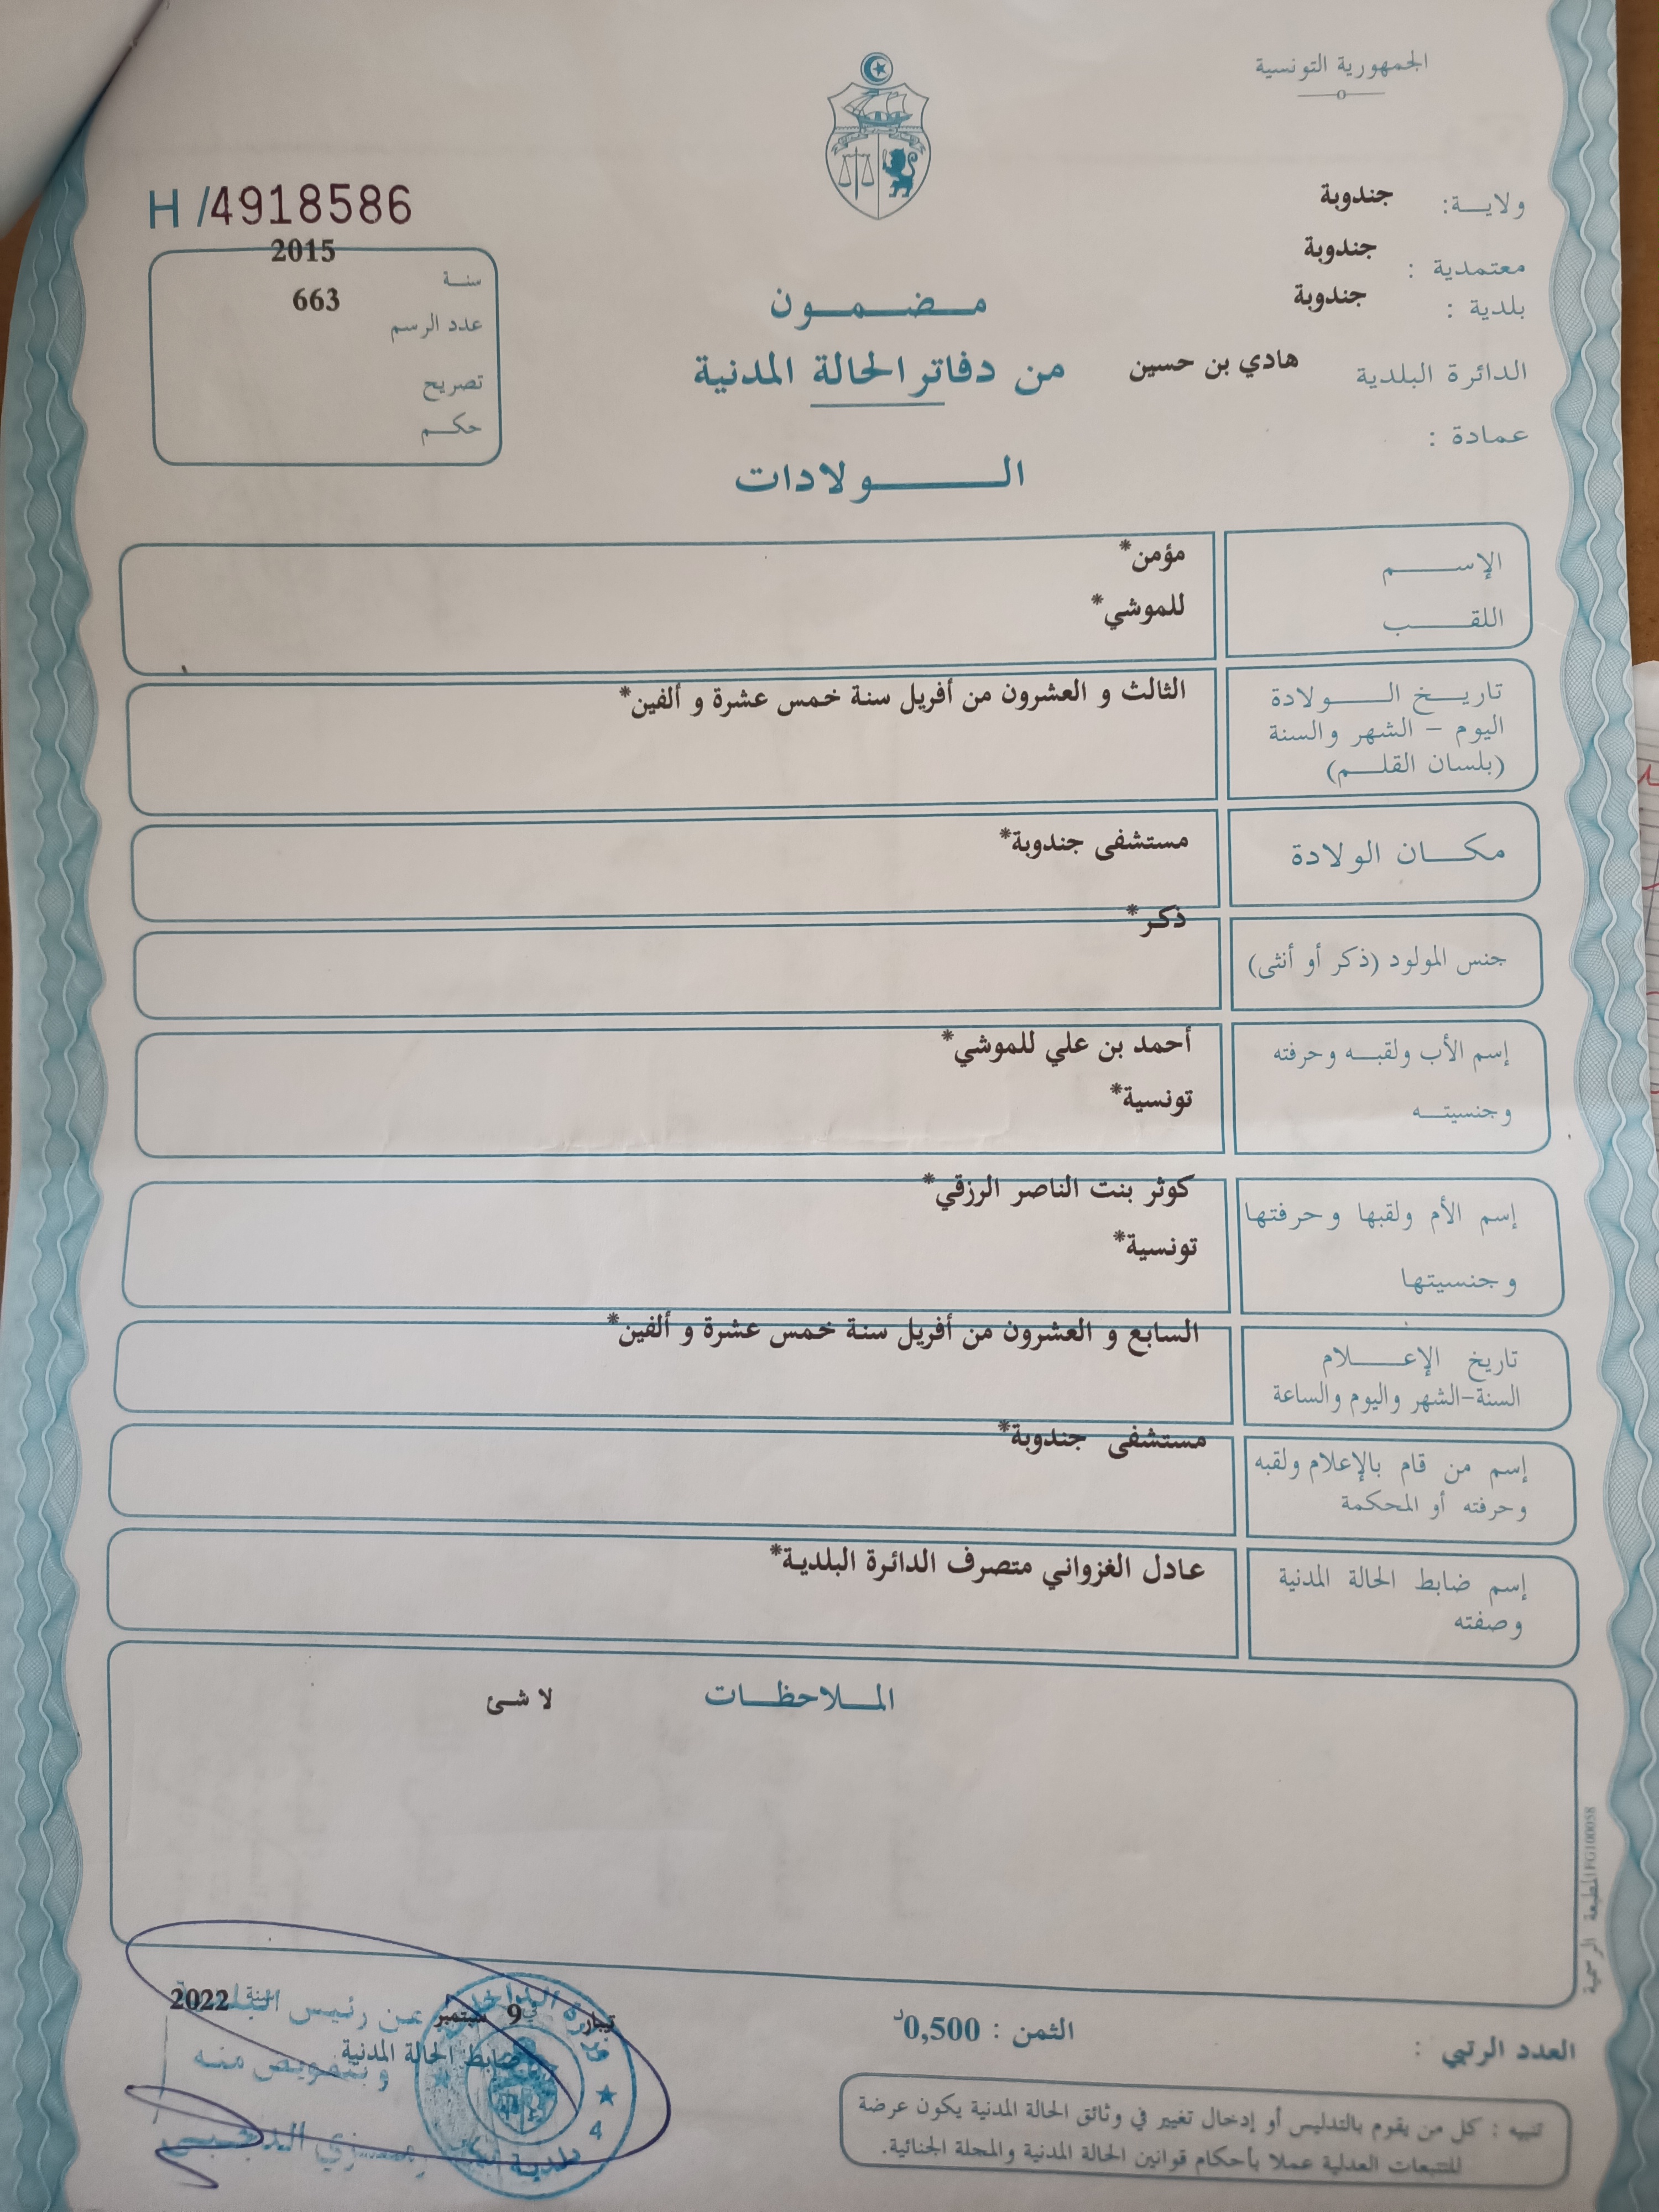 الجمهورية التونسية
ولاية: جندوبة
معتمدية : جندوبة
بلدية : جندوبة
الدائرة البلدية هادي بن حسين
عمادة :
H /4918586
سنة 2015
عدد الرسم 663
تصريح
حكم
مضمون
من دفاتر الحالة المدنية
الولادات
الإسم مؤمن*
اللقب للموشي*
تاريخ الولادة الثالث و العشرون من أفريل سنة خمس عشرة و ألفين*
اليوم - الشهر والسنة
(بلسان القلم)
مكان الولادة مستشفى جندوبة*
جنس المولود (ذكر أو أنثى) ذكر*
إسم الأب ولقبه وحرفته أحمد بن علي للموشي*
وجنسيته تونسية*
إسم الأم ولقبها وحرفتها كوثر بنت الناصر الرزقي*
وجنسيتها تونسية*
تاريخ الإعلام السابع و العشرون من أفريل سنة خمس عشرة و ألفين*
السنة-الشهر واليوم والساعة
إسم من قام بالإعلام ولقبه مستشفى جندوبة*
وحرفته أو المحكمة
إسم ضابط الحالة المدنية عادل الغزواني متصرف الدائرة البلدية*
وصفته
الملاحظات لا شئ
المطبعة الرسمية FG100058
تيبار في 9 سبتمبر سنة 2022
ضابط الحالة المدنية
عن رئيس البلدية
وبتفويض منه
بلدية تيبار
4
الثمن : 0,500د
العدد الرتبي :
تنبيه : كل من يقوم بالتدليس أو إدخال تغيير في وثائق الحالة المدنية يكون عرضة
للتتبعات العدلية عملا بأحكام قوانين الحالة المدنية والمجلة الجنائية.